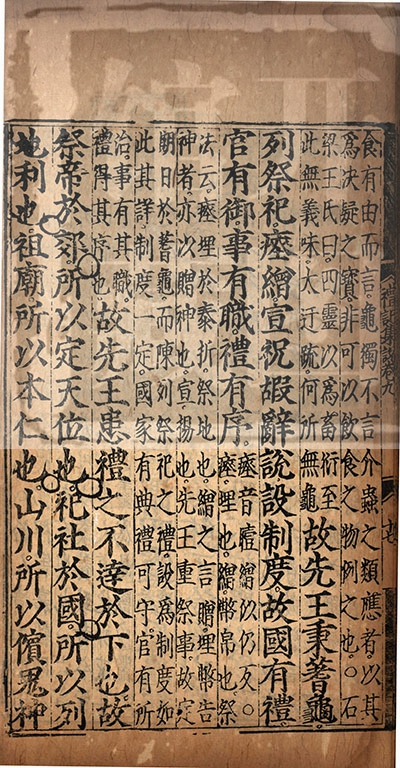 禮記集說卷九
食有由而言龜獨不言介蟲之類應者以其
爲決疑之寶非可以飲食之物例之也○石
梁王氏曰四靈以爲畜衍至
此無義味太迂疏何所無龜
故先王秉蓍龜
列祭祀瘞繒宣祝嘏辭說設制度故國有禮
官有御事有職禮有序
瘞音繒似仍反○
瘞埋也繒幣帛也祭
法云瘞埋於泰折祭地也繒之言贈埋幣告
神者亦以贈神也宣揚也先王重祭事故定
期日於蓍龜而陳列祭祀之禮設爲制度如
此其詳制度一定國家有典禮可守官有所
治事有其職
禮得其序也
故先王患禮之不達於下也故
祭帝於郊所以定天位也祀社於國所以列
地利也祖廟所以本仁也山川所以儐鬼神